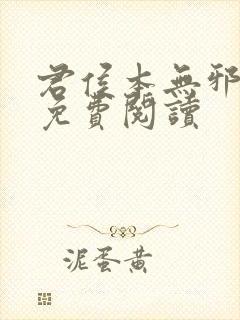 君侯本無邪
免費閱讀
泥蛋黃